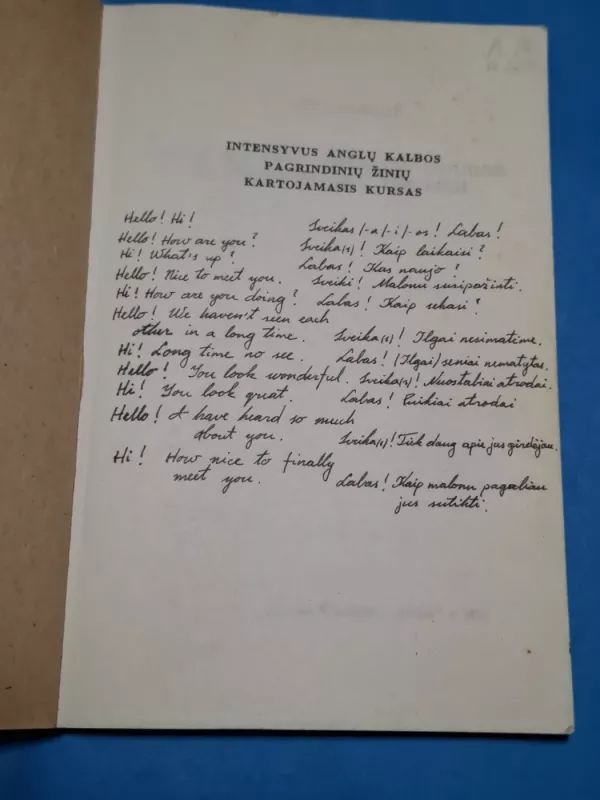 INTENSYVUS ANGLŲ KALBOS
PAGRINDINIŲ ŽINIŲ
KARTOJAMASIS KURSAS
Hello! Hi! Sveikas/-a/-i/-os! Labas!
Hello! How are you? Sveika(s)! Kaip laikaisi?
Hi! What's up? Labas! Kas naujo?
Hello! Nice to meet you. Sveiki! Malonu susipažinti.
Hi! How are you doing? Labas! Kaip sekasi?
Hello! We haven't seen each
other in a long time. Sveika(s)! Ilgai nesimatėme.
Hi! Long time no see. Labas! (Ilgai) seniai nematytas.
Hello! You look wonderful. Sveika(s)! Nuostabiai atrodai.
Hi! You look great. Labas! Puikiai atrodai
Hello! I have heard so much
about you. Sveika(s)! Tiek daug apie jus girdėjau.
Hi! How nice to finally
meet you. Labas! Kaip malonu pagaliau
jus sutikti.